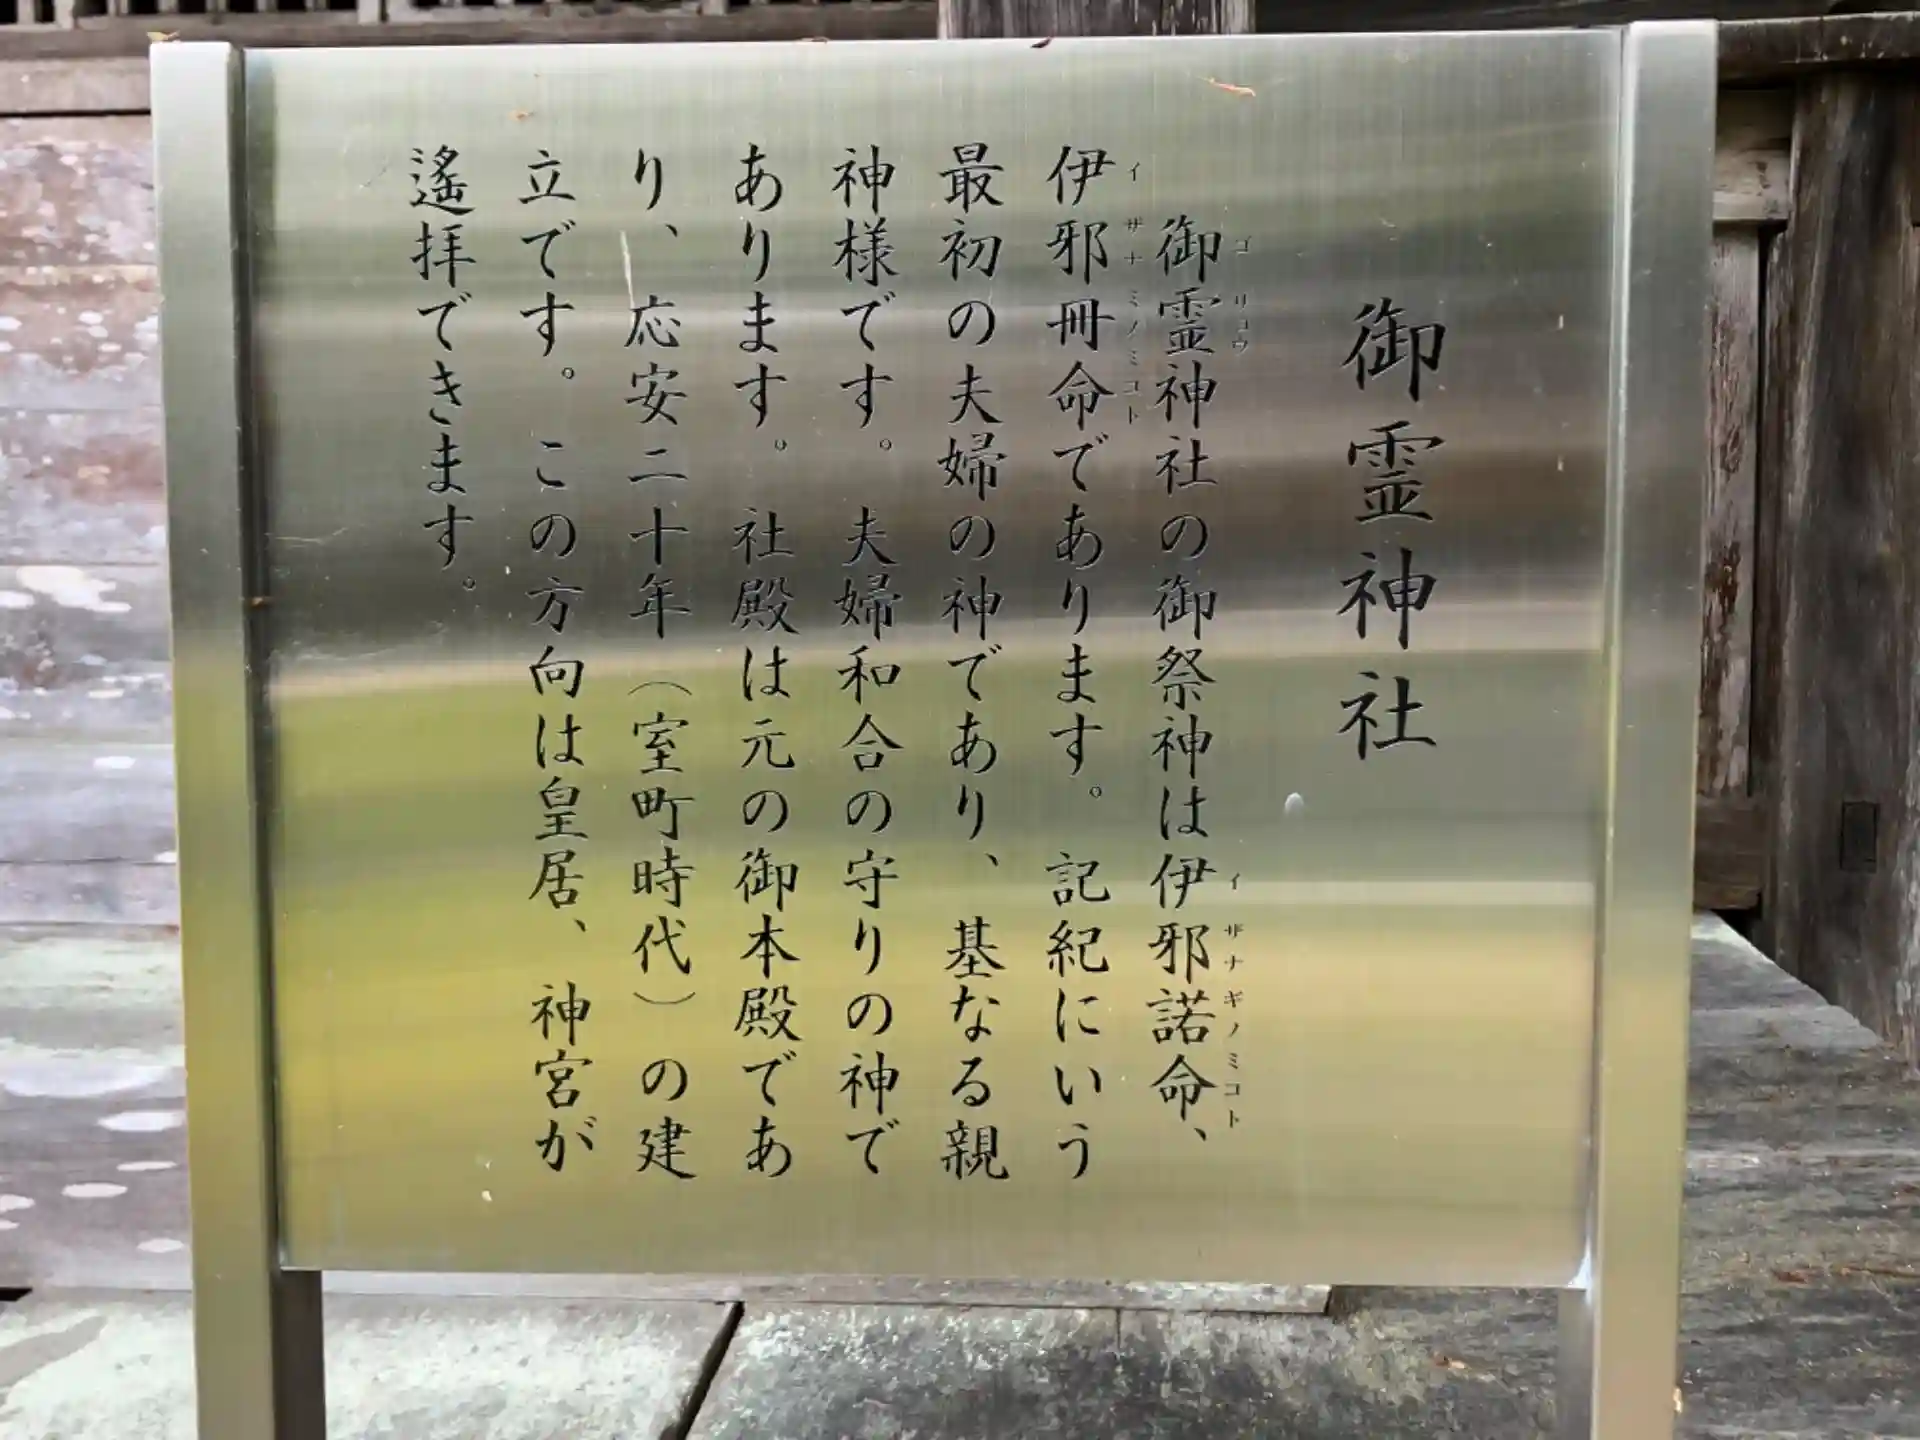 御霊神社
御霊神社の御祭神は伊邪諾命、
伊邪冊命であります。記紀にいう
最初の夫婦の神であり、基なる親
神様です。夫婦和合の守りの神で
あります。社殿は元の御本殿であ
り、応安二十年（室町時代）の建
立です。この方向は皇居、神宮が
遙拝できます。
ゴリョウ
イザナギノミコト
イザナミノミコト